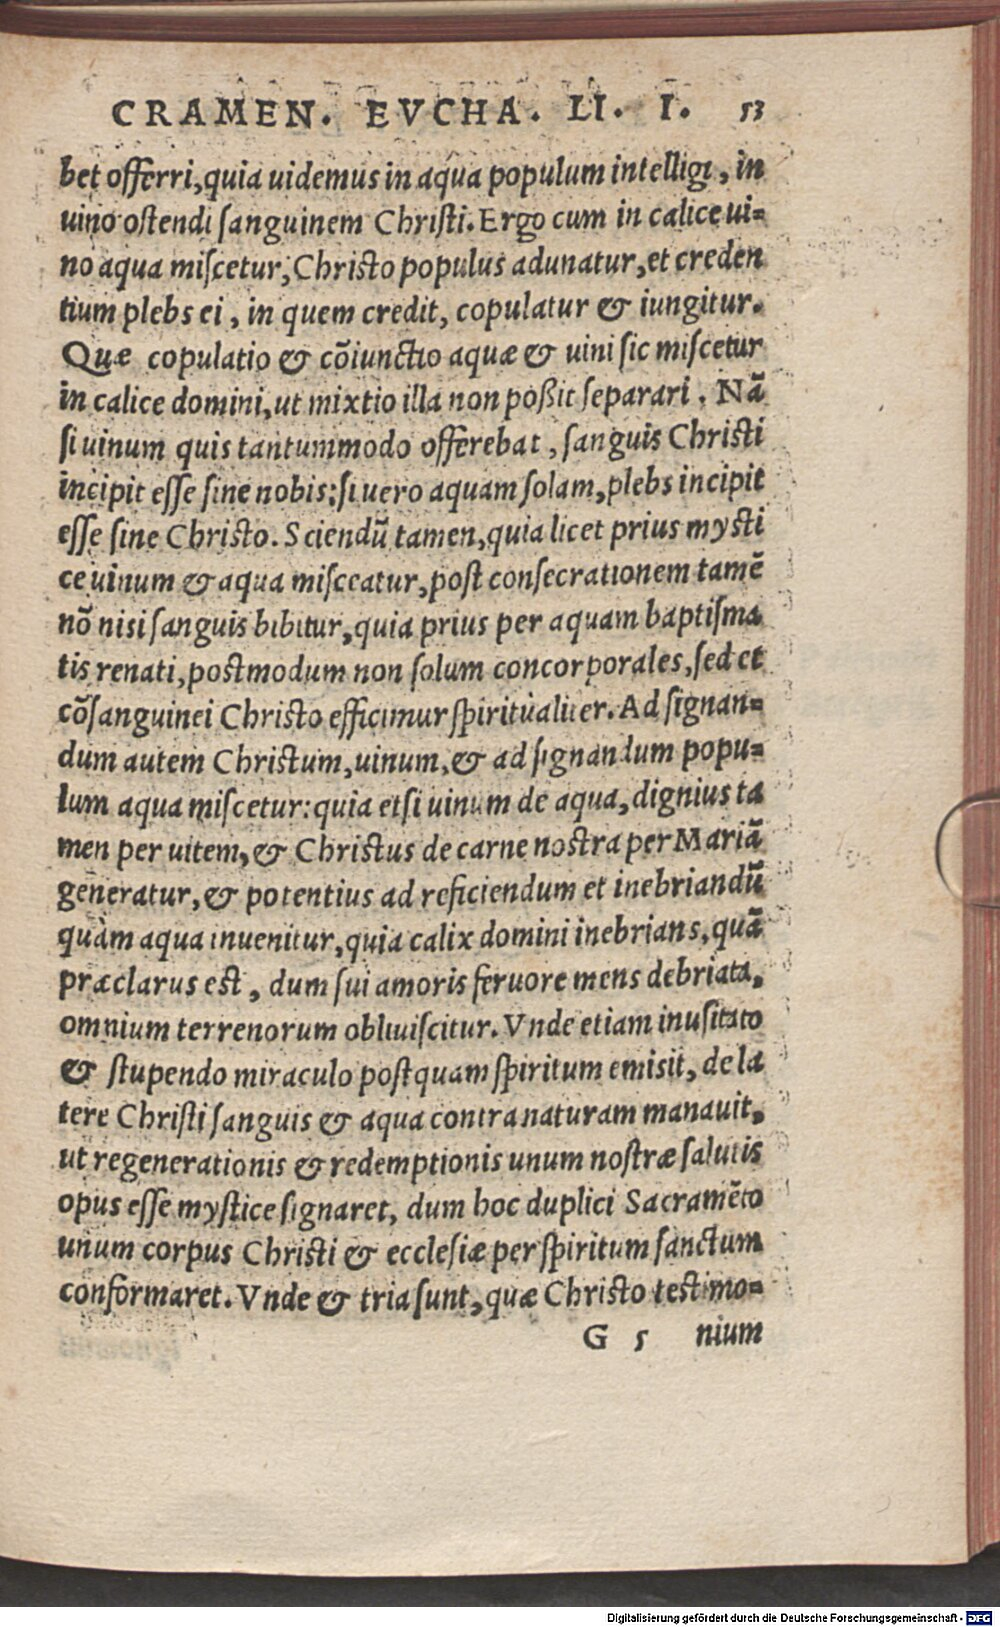 CRAMEN. EVCHA. LI. I. 53
bet offerri, quia uidemus in aqua populum intelligi, in
uino ostendi sanguinem Christi. Ergo cum in calice ui-
no aqua miscetur, Christo populus adunatur, et creden
tium plebs ei, in quem credit, copulatur & iungitur.
Quæ copulatio & cõiunctio aquæ & uini sic miscetur
in calice domini, ut mixtio illa non poßit separari. Nã
si uinum quis tantummodo offerebat, sanguis Christi
incipit esse sine nobis: si uero aquam solam, plebs incipit
esse sine Christo. Sciendũ tamen, quia licet prius mysti
ce uinum & aqua misceatur, post consecrationem tamẽ
nõ nisi sanguis bibitur, quia prius per aquam baptisma
tis renati, postmodum non solum concorporales, sed et
cõsanguinei Christo efficimur spiritualiter. Ad signan-
dum autem Christum, uinum, & ad signandum popu-
lum aqua miscetur: quia etsi uinum de aqua, dignius ta
men per uitem, & Christus de carne nostra per Mariã
generatur, & potentius ad reficiendum et inebriandũ
quàm aqua inuenitur, quia calix domini inebrians, quã
præclarus est, dum sui amoris feruore mens debriata,
omnium terrenorum obliuiscitur. Vnde etiam inusitato
& stupendo miraculo postquam spiritum emisit, de la
tere Christi sanguis & aqua contra naturam manauit,
ut regenerationis & redemptionis unum nostræ salutis
opus esse mystice signaret, dum hoc duplici Sacramẽto
unum corpus Christi & ecclesiæ per spiritum sanctum
conformaret. Vnde & tria sunt, quæ Christo testimo-
G 5 nium
Digitalisierung gefördert durch die Deutsche Forschungsgemeinschaft - DFG